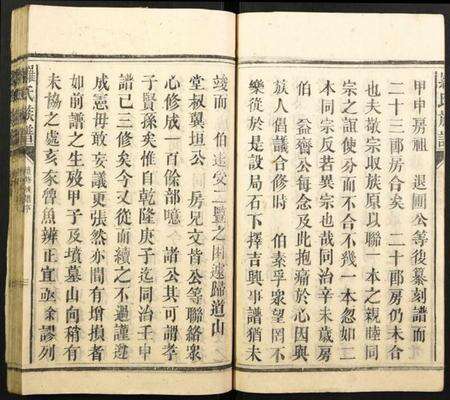 甲申房祖 退圃公等復纂刻譜而
二十三郎房合矣 二十郎房仍未合
也夫敬宗收族原以聯一本之親睦同
宗之誼使分而不合不幾一本忽如二
本同宗反若異宗也哉同治辛未歲房
伯 益齋公每念及此抱痛於心因與
族人倡議合修時 伯泰孚眾望罔不
樂從於是設局石下擇吉興事譜猶未
竣而 伯遽 二豎之困遂歸道山
堂叔巽垣公 房兄文皆公等聯絡眾
心修成一百餘部噫 諸公其可謂孝
子賢孫矣惟自乾隆庚子迄同治壬申
譜已三修矣今又從而續之不過謹遵
成憲毋敢妄議更張然亦間有增損者
如前譜之生歿甲子及墳墓山向稍有
未協之處亥豕魯魚辨正宜亟余謬列
羅氏族譜
羅氏族譜